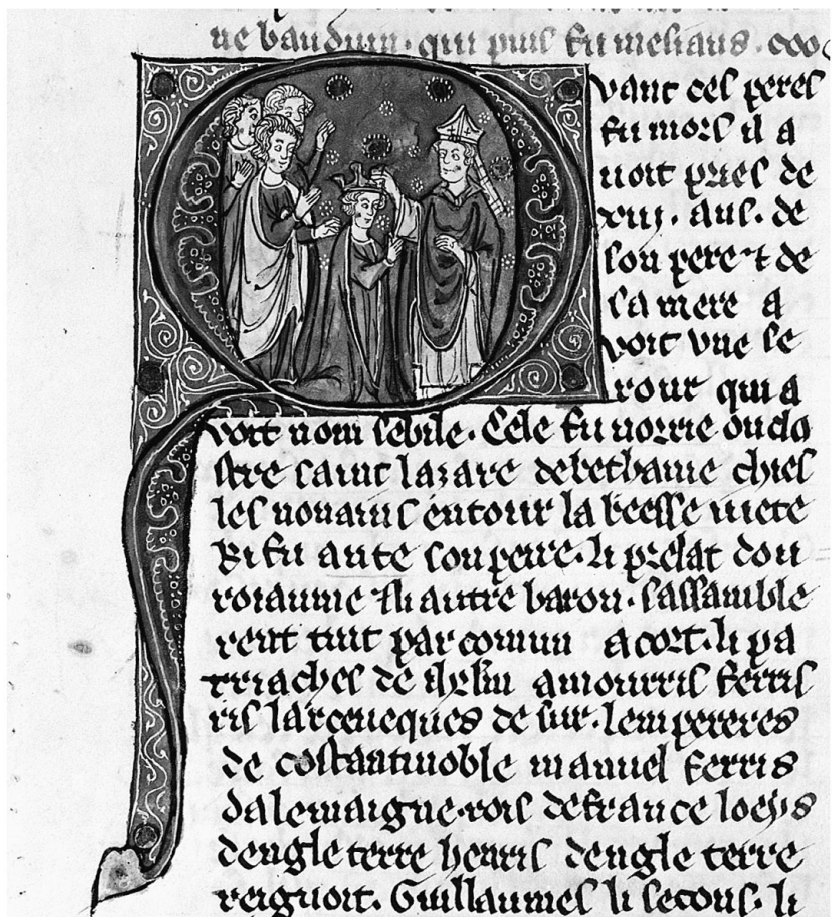 ue bauduin. qui puis fu mesiaus.
Quant ces peres
fu mors il a
uoit pres de
xiij. ans. de
son pere ⁊ de
sa mere a
uoit vne se
rour qui a
uoit nom sebile. Cele fu norrie ou clo
stre saint lazare de bethanie chies
les nonains entour la beesse iuete
ki fu ante son pere. li prelat dou
roiaume ⁊ li autre baron. sassamble
rent tuit par comun acort. li pa
triaches de amourris ferris
li larceueques de sur. lempereres
de costantinoble manuel ferris
dalemaigne. rois de france loeys
dengleterre henris dengleterre
reignoit. Guillaumes li secons. li